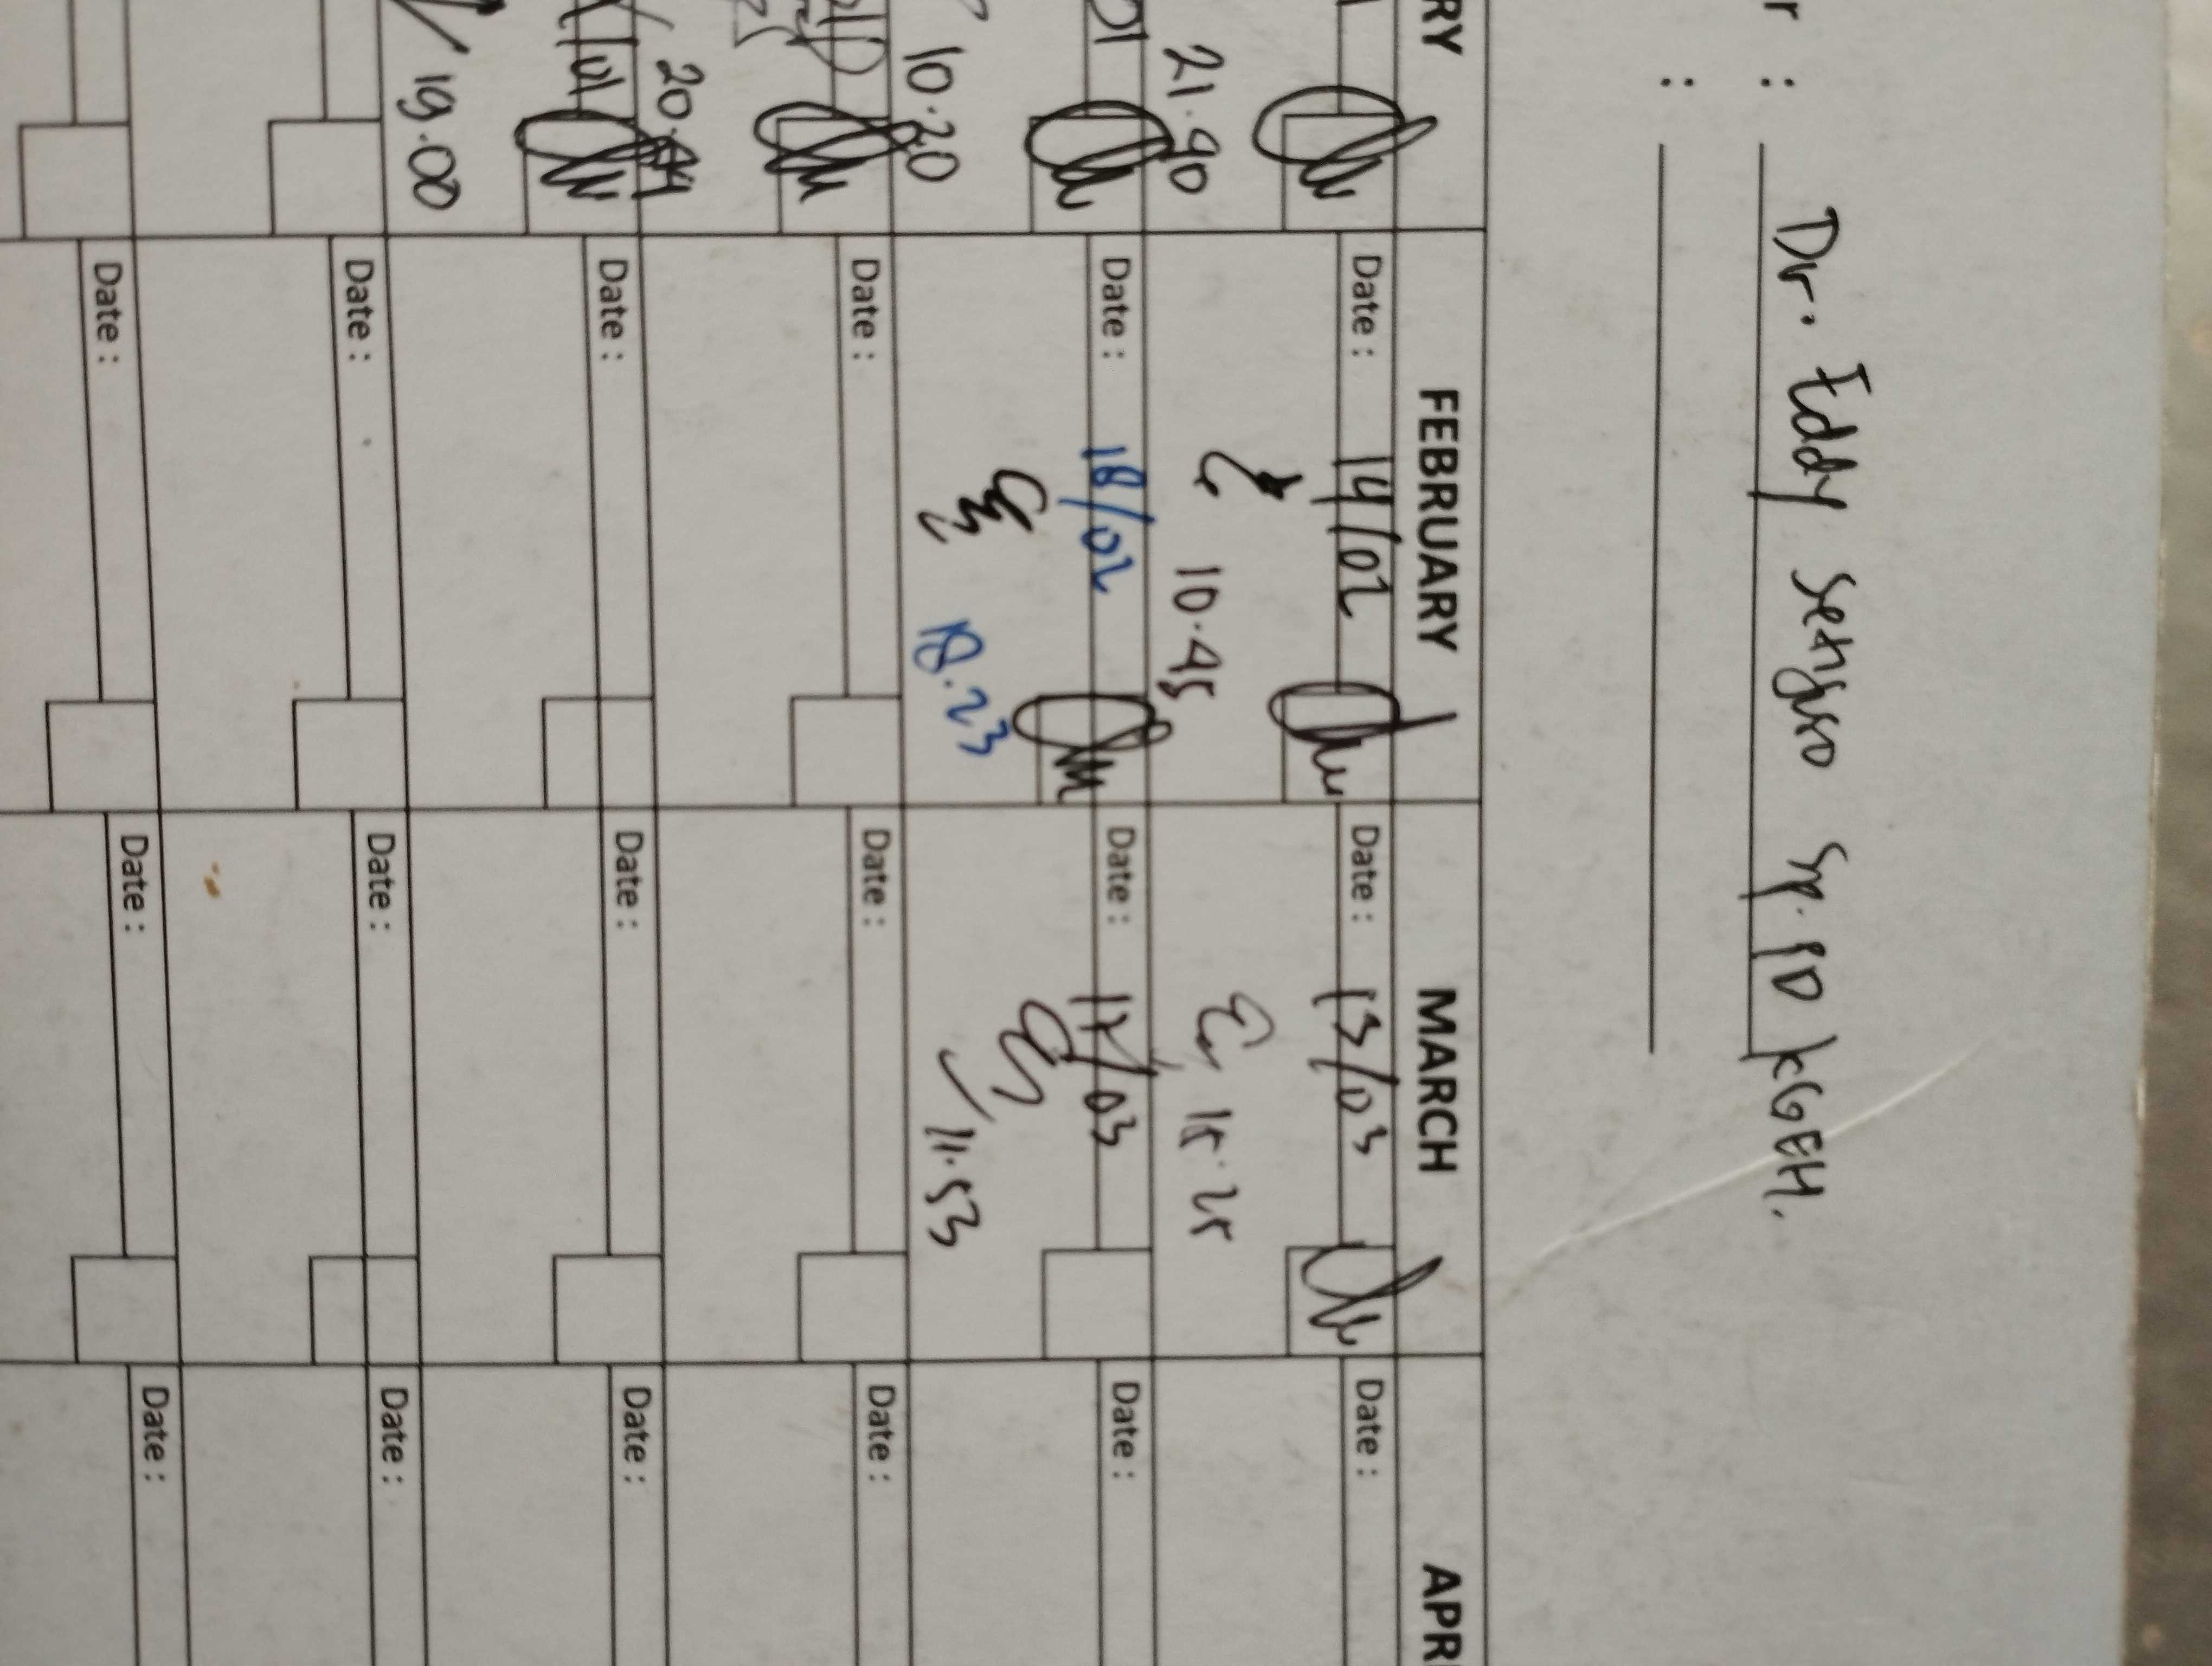 r : Dr. Eddy Sp.PD KGEH.
:
RY FEBRUARY MARCH APR
Date : 14/02 Date : 13/03 Date :
21.40 10.45 15.25
01 Date : 18/02 Date : 17/03 Date :
10.20 18.23 11.53
Date : Date : Date :
20.
/01 Date : Date : Date :
19.00
Date : Date : Date :
Date : Date : Date :